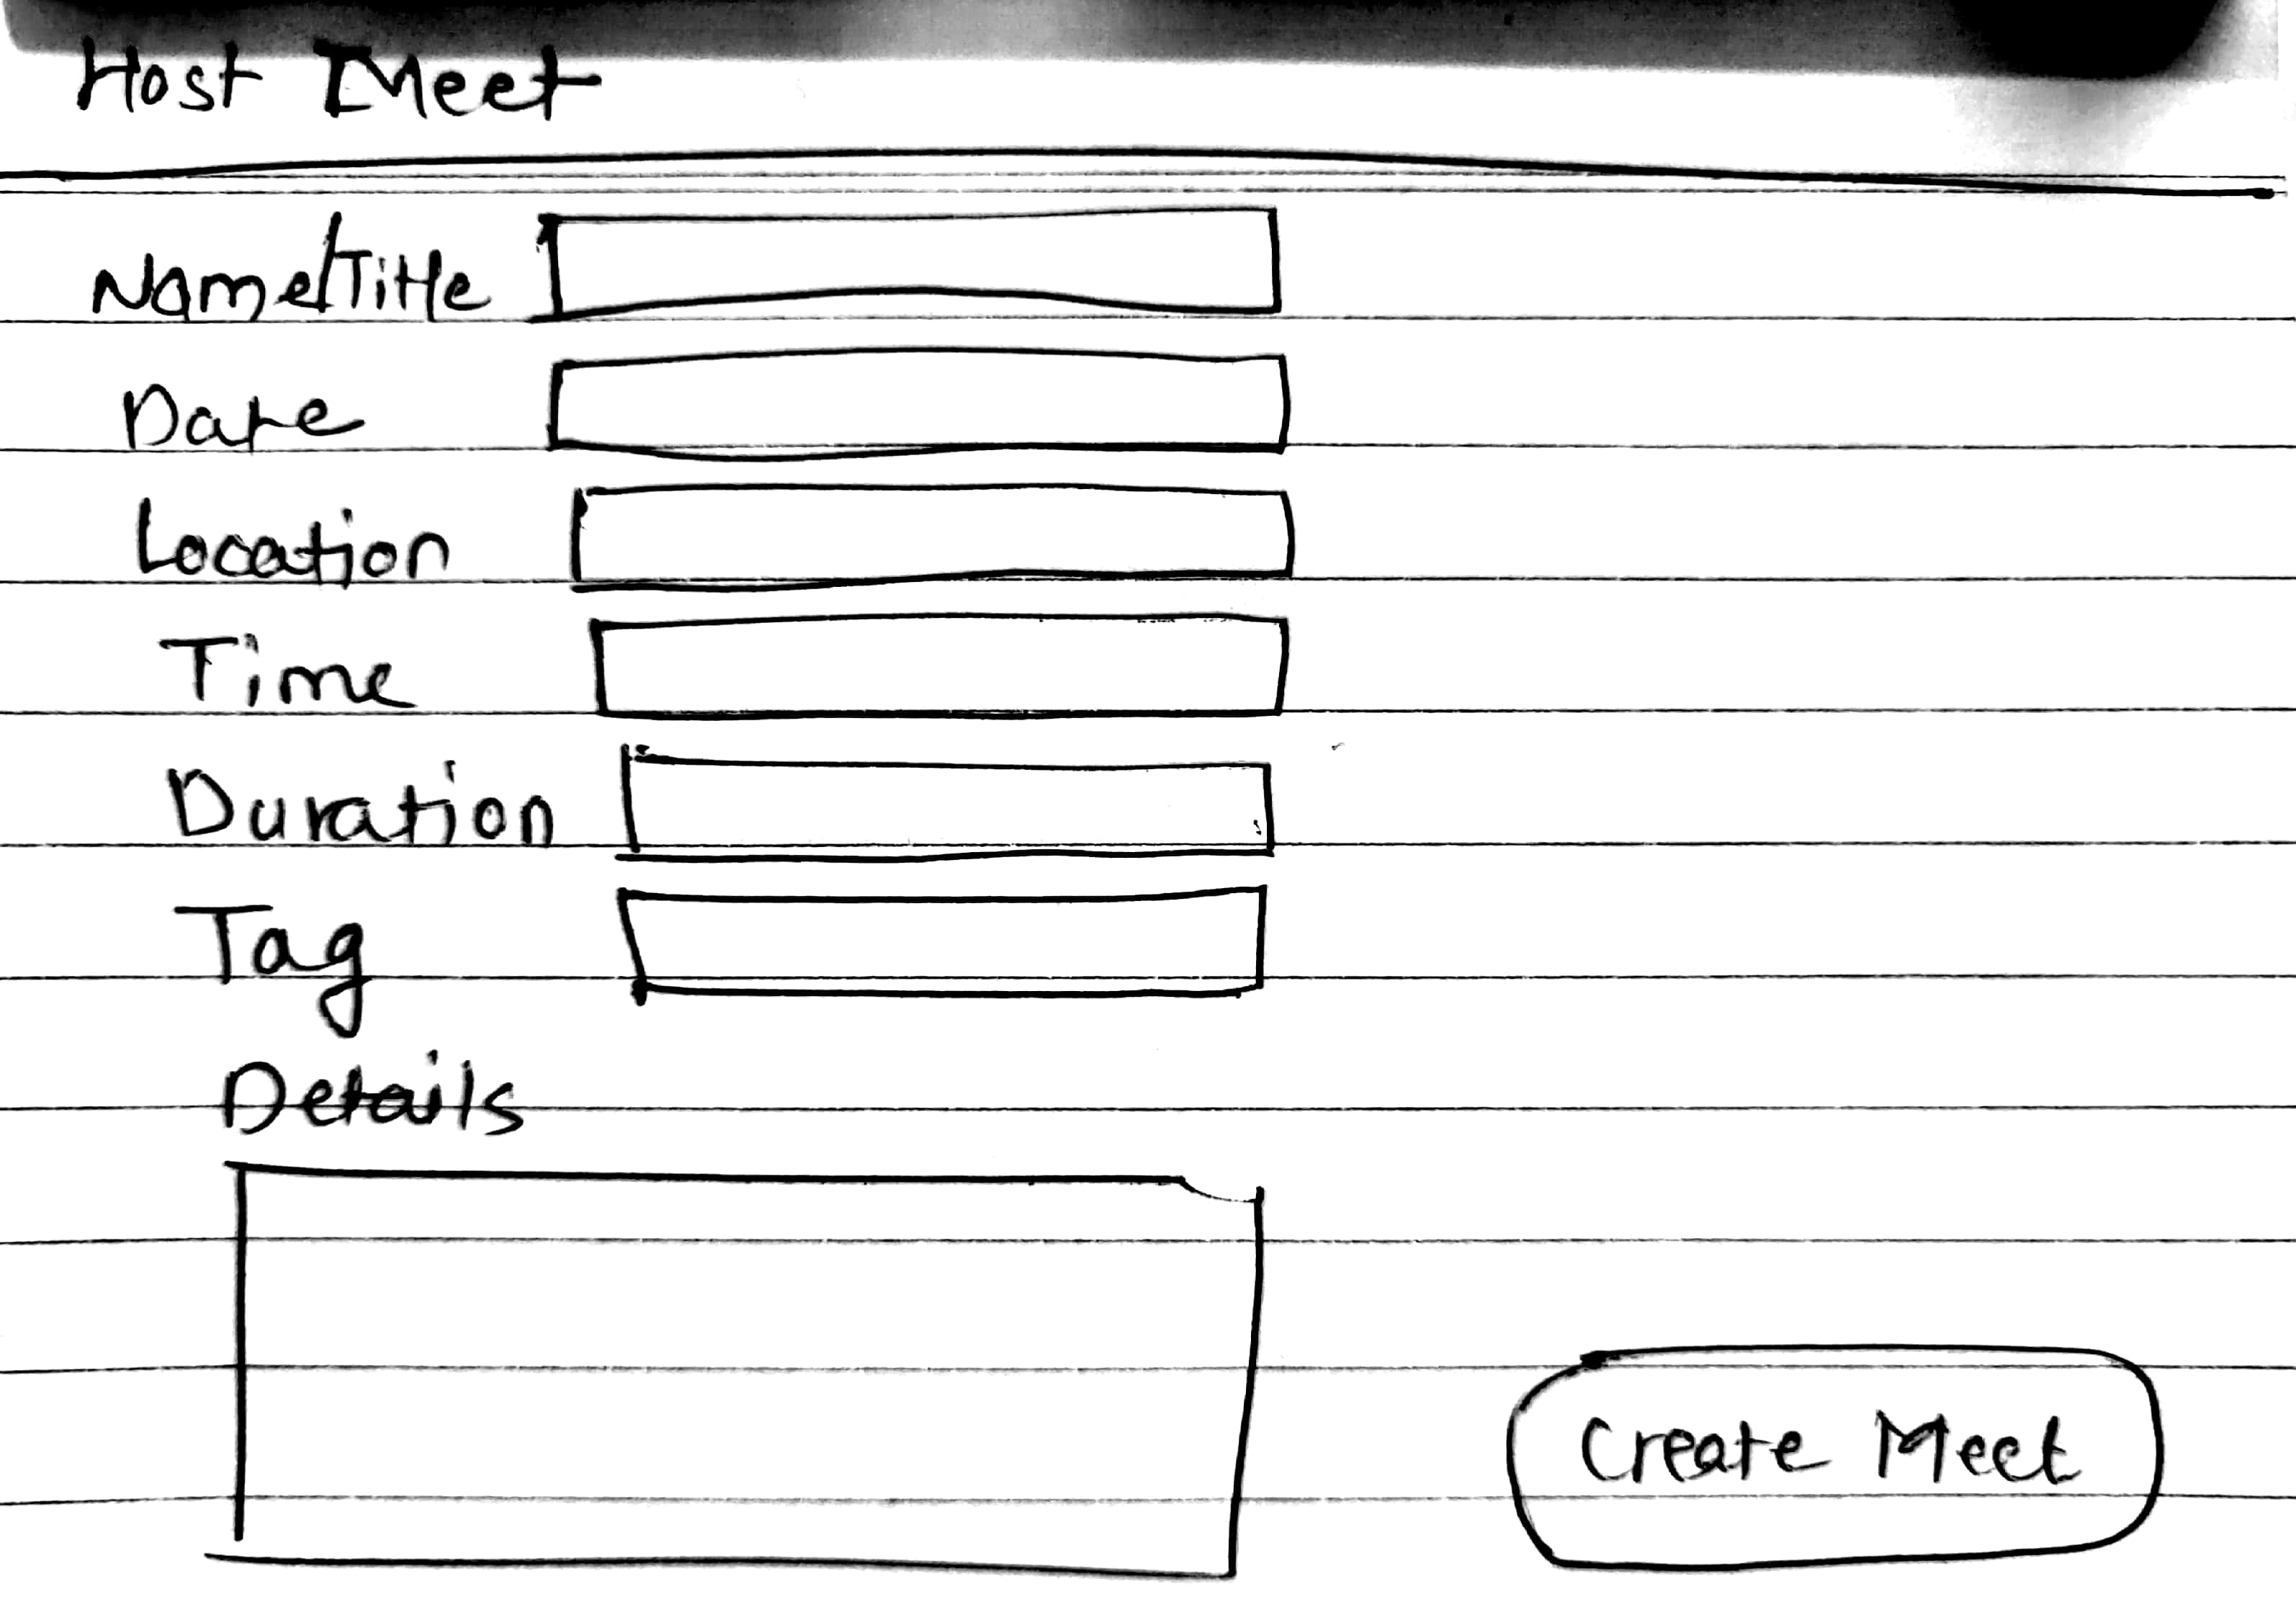 Host Meet
Name/Title
Date
Location
Time
Duration
Tag
Details
Create Meet